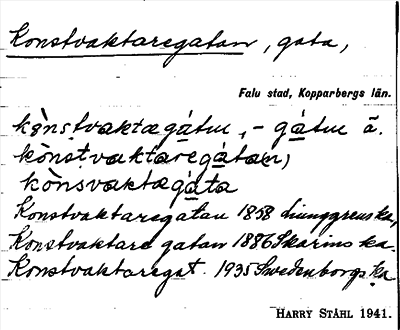 Konstvaktaregatan, gata,
Falu stad, Kopparbergs län.
kònstvaktægàtm, - gàtm ä.
kònstvaktaregàtan,
kònsvaktægàta
Konstvaktaregatan 1858 Ljunggrens ka,
Konstvaktaregatan 1886 Skarins ka.
Konstvaktaregat. 1935 Swedenborgs ka
HARRY STÅHL 1941.